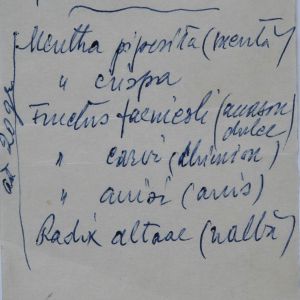 Mentha piperita (mentă)
" crispa
Fructus foeniculi (anason
dulce)
" carvi (chimion)
" anisi (anis)
Radix altaae (nalbă)
aa 20 gr